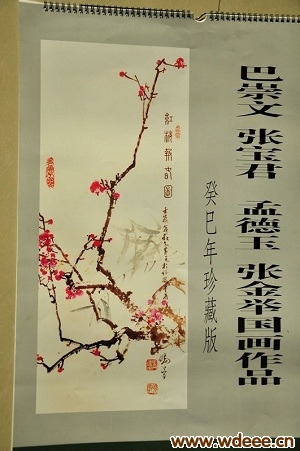 巴崇文 张宝君 孟德玉 张金举国画作品
癸巳年珍藏版
红梅报春图
www.wdeee.cn